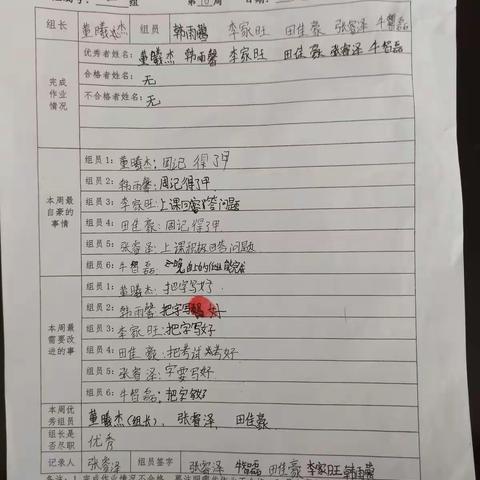 组长 董曦杰 组员 韩雨馨 李家旺 田佳豪 张睿泽 牛智磊
完成作业情况
优秀者姓名：董曦杰 韩雨馨 李家旺 田佳豪 张睿泽 牛智磊
合格者姓名：无
不合格者姓名：无
本周最自豪的事情
组员1：董曦杰：周记得了甲
组员2：韩雨馨：周记得了甲.
组员3：李家旺：上课回答了问题
组员4：田佳豪：周记得了甲
组员5：张睿泽：上课积极回答问题
组员6：牛智磊：
本周最需要改进的事
组员1：董曦杰：把字写好.
组员2：韩雨馨：把字写好
组员3：李家旺：把字写好
组员4：田佳豪：把考试考好
组员5：张睿泽：字要写好.
组员6：牛智磊：把字写好
本周优秀组员 董曦杰(组长)，张睿泽，田佳豪
组长是否尽职 优秀
记录人 张睿泽 组员签字 张睿泽 牛智磊 田佳豪 李家旺 韩雨馨